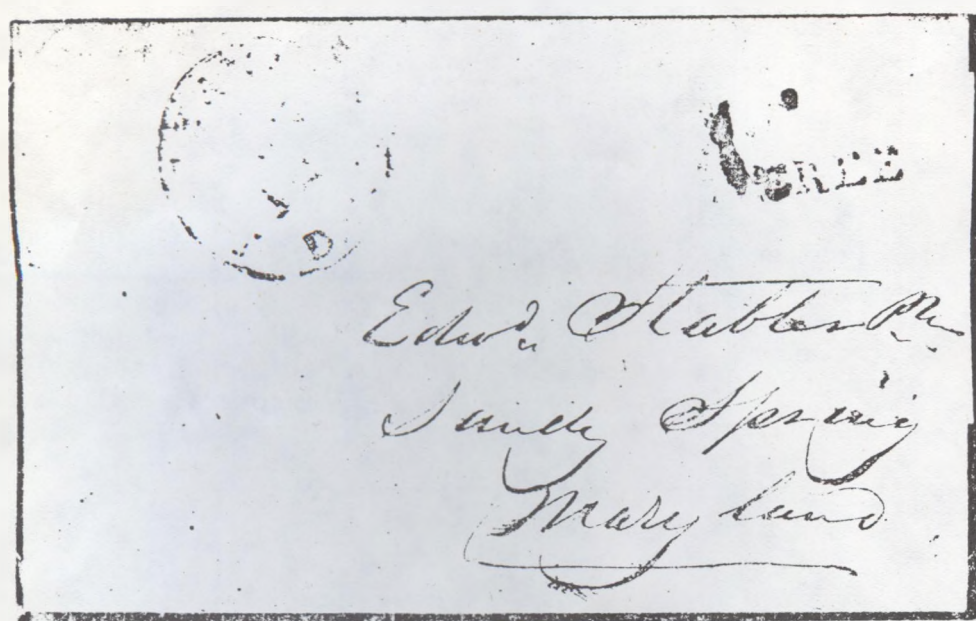 FREE
Edwd. Stabler PM
Sandy Spring
Maryland